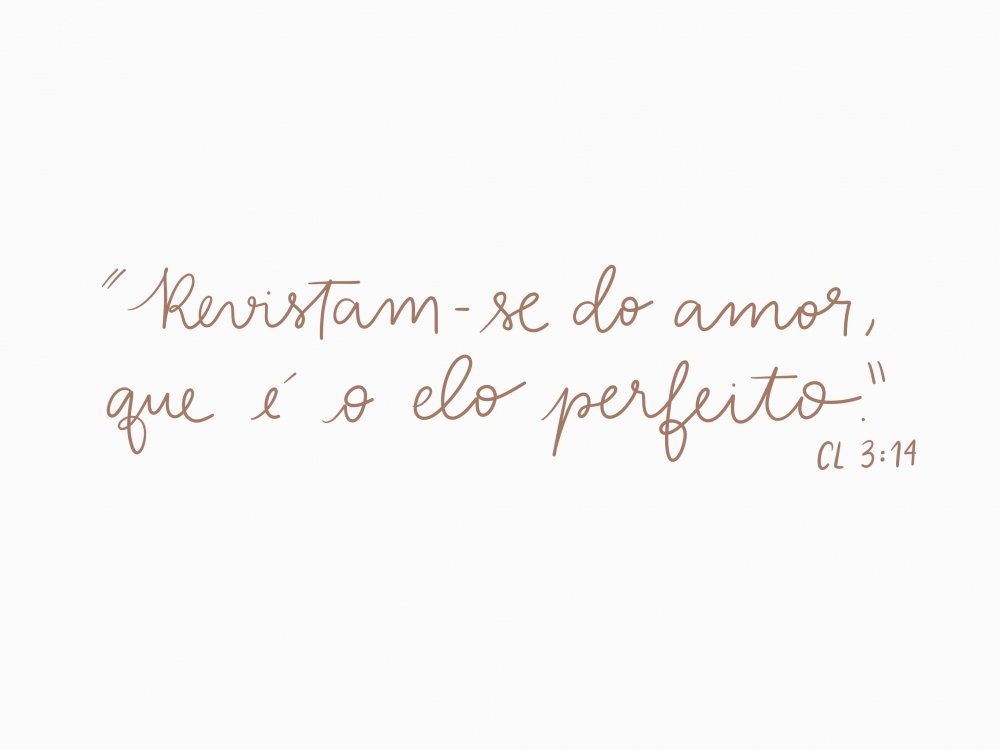 "Revistam-se do amor,
que é o elo perfeito."
CL 3:14